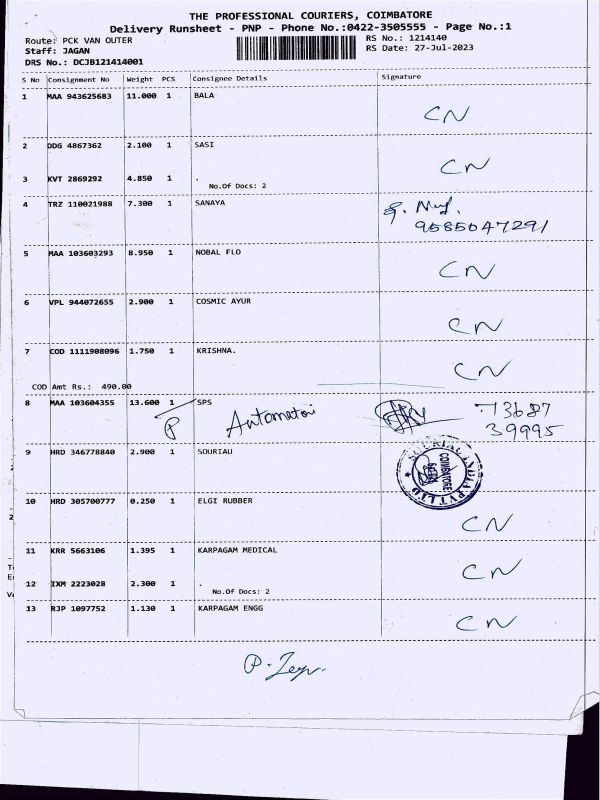 THE PROFESSIONAL COURIERS, COIMBATORE
Delivery Runsheet - PNP - Phone No.:0422-3505555 - Page No.:1
Route: PCK VAN OUTER
RS No.: 1214140
Staff: JAGAN
RS Date: 27-Jul-2023
DRS No.: DCJB121414001
S No Consignment No Weight PCS Consignee Details Signature
1 MAA 943625683 11.000 1 BALA
CN
2 DDG 4867362 2.100 1 SASI
CN
3 KVT 2869292 4.850 1 .
No.Of Docs: 2
4 TRZ 110021988 7.300 1 SANAYA
9585047291
5 MAA 103603293 8.950 1 NOBAL FLO
CN
6 VPL 944072655 2.900 1 COSMIC AYUR
CN
7 COD 1111908096 1.750 1 KRISHNA.
CN
COD Amt Rs.: 490.00
8 MAA 103604355 13.600 1 SPS
73687
39995
9 HRD 346778840 2.900 1 SOURIAU
SOURIAU INDIA PVT LTD
COIMBATORE
10 HRD 305700777 0.250 1 ELGI RUBBER
CN
11 KRR 5663106 1.395 1 KARPAGAM MEDICAL
CN
12 IXM 2223028 2.300 1 .
No.Of Docs: 2
13 RJP 1097752 1.130 1 KARPAGAM ENGG
CN